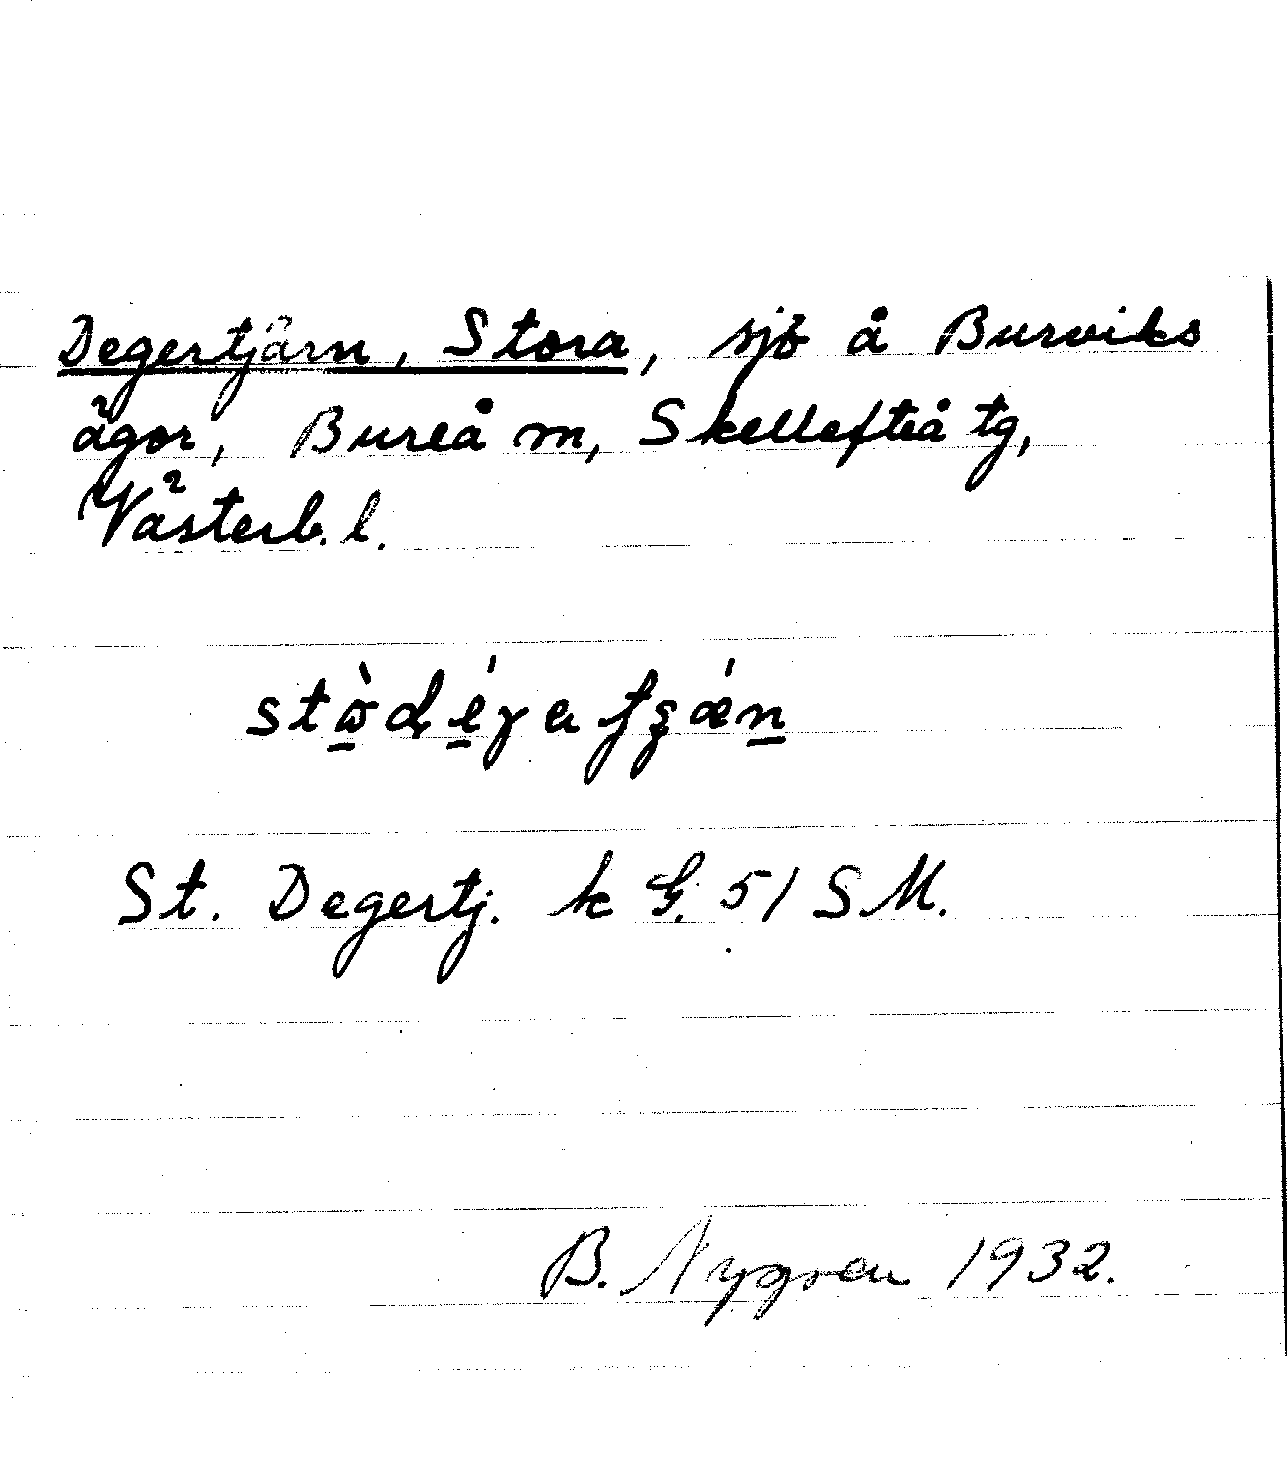 Degertjärn, Stora, sjö å Burviks
ägor, Bureå m, Skellefteå tg,
Västerb. l.
St. Degertj. k G. 51 SM.
B. Nygren 1932.